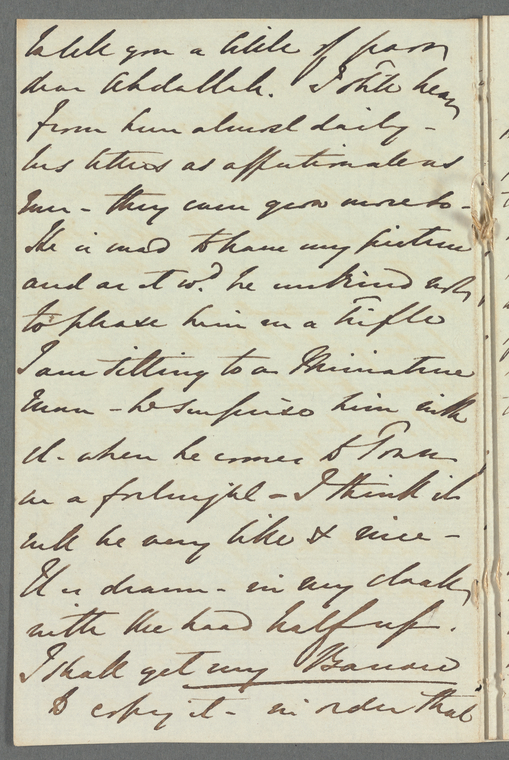 to tell you a little of poor
dear Abdallah. I still hear
from him almost daily -
his letters as affectionate as
ever - they even grow more so -
He is mad to have my picture
and as it wd. be unkind not
to please him in a trifle
I am sitting to a Miniature
man - to surprise him with
it - when he comes to Town
in a fortnight - I think it
will be very like & nice -
It is drawn - in my cloak,
with the hood half up.
I shall get my
to copy it - in order that